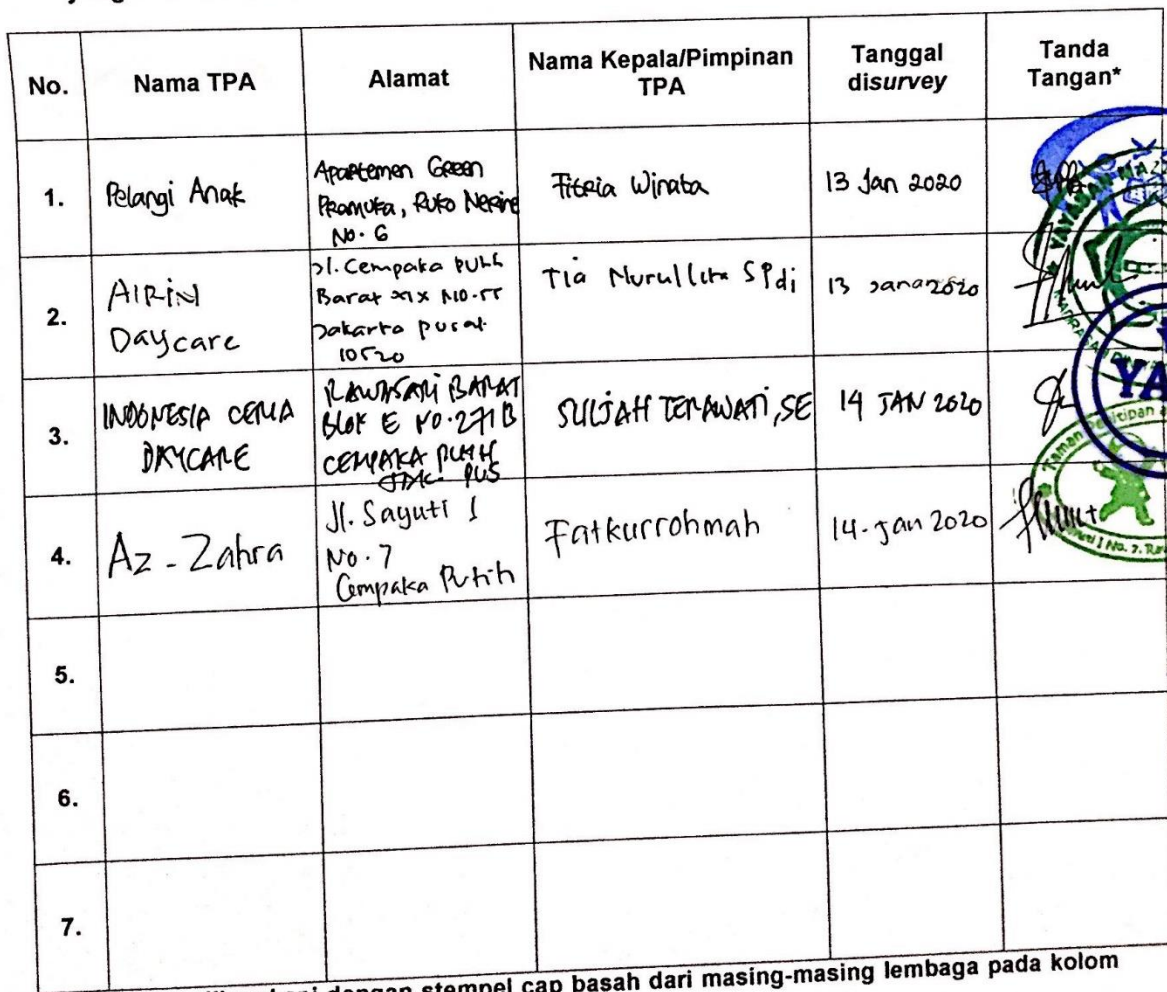 No.
Nama TPA
Alamat
Nama Kepala/Pimpinan
TPA
Tanggal
disurvey
Tanda
Tangan*
1.
Pelangi Anak
Apartemen Green
Pramuka, Ruko Nerine
No. 6
Fitria Winata
13 Jan 2020
2.
AIRIN
Daycare
Jl. Cempaka Putih
Barat XIX No.
Jakarta pusat
10520
Tia Nurullita SPdi
13 2020
3.
INDONESIA CERIA
DAYCARE
RAWASARI BARAT
BLOK E NO.271B
CEMPAKA PUTIH
JAK-PUS
SULIJAH TERAWATI, SE
14 JAN 2020
4.
Az-Zahra
Jl. Sayuti I
No. 7
Cempaka Putih
Fatkurrohmah
14-Jan 2020
5.
6.
7.
YAYASAN
YA
Taman Penitipan
I No. 7.
dengan stempel cap basah dari masing-masing lembaga pada kolom